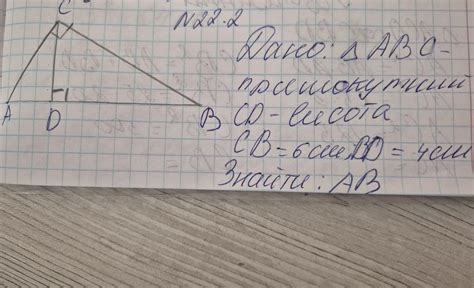 N22.2
C
A
D
B
Дано: △ABC-
прямокутний
CD-висота
CB=6см BD=4см
Знайти: AB